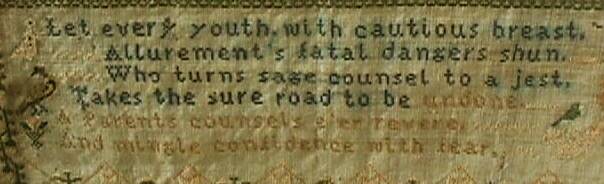 Let every youth, with cautious breast,
Allurement's fatal dangers shun.
Who turns sage counsel to a jest,
Takes the sure road to be undone.
A Parents counsels e'er revere,
And mingle confidence with fear.